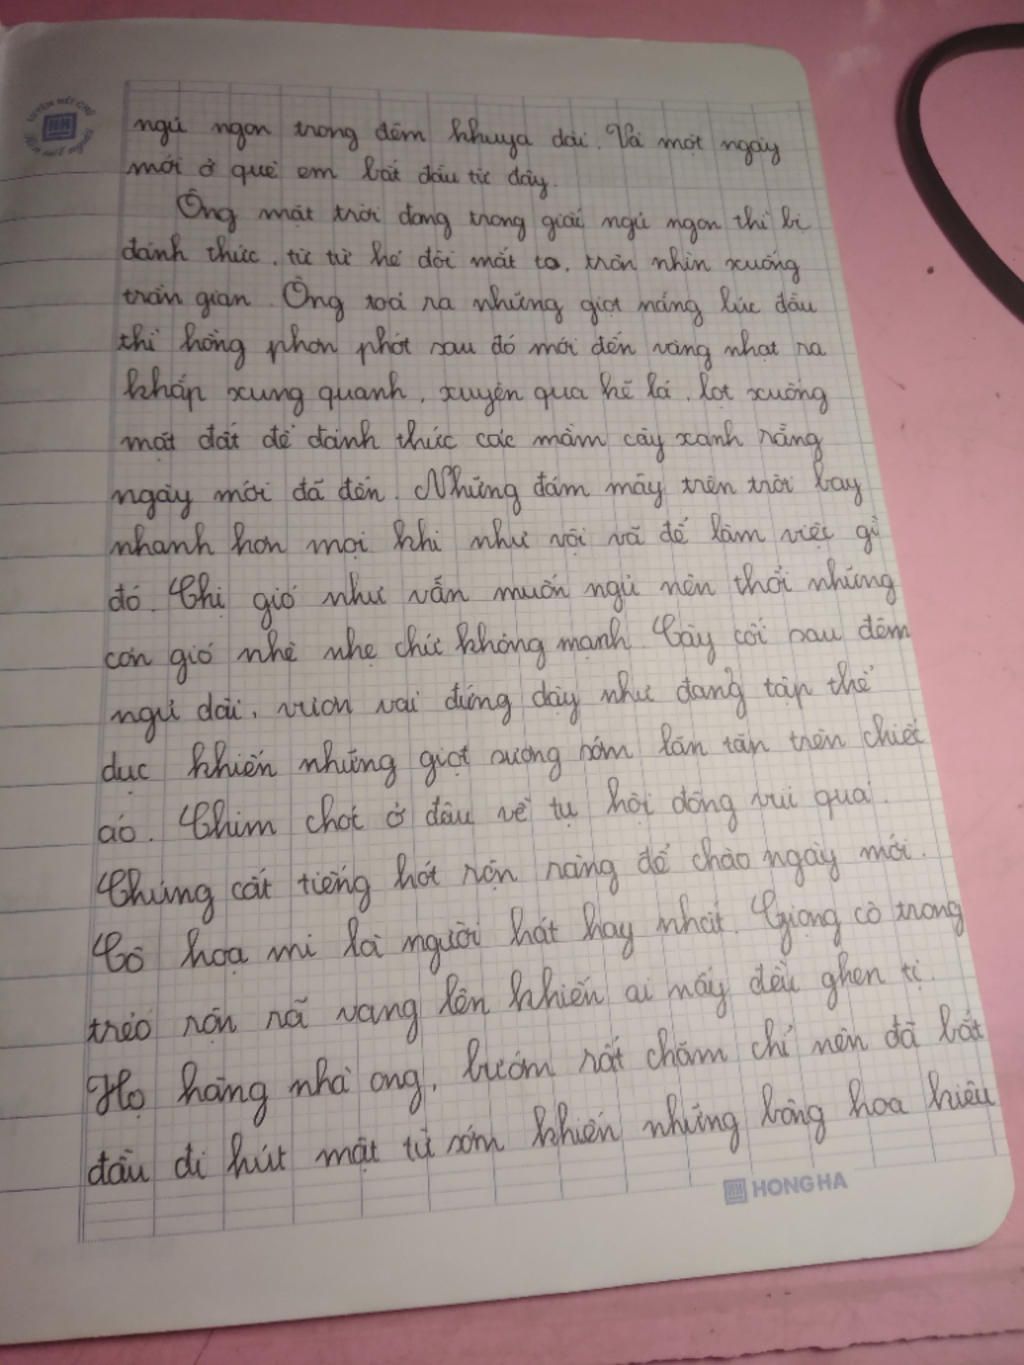 ngủ ngon trong đêm khuya dài. Và một ngày
mới ở quê em bắt đầu từ đây.
Ông mặt trời đang trong giấc ngủ ngon thì bị
đánh thức, từ từ hé đôi mắt to, tròn nhìn xuống
trần gian. Ông toả ra những giọt nắng lúc đầu
thì hồng phơn phớt sau đó mới đến vàng nhạt ra
khắp xung quanh, xuyên qua kẽ lá, lọt xuống
mặt đất để đánh thức các mầm cây xanh rằng
ngày mới đã đến. Những đám mây trên trời bay
nhanh hơn mọi khi như vội vã để làm việc gì
đó. Chị gió như vẫn muốn ngủ nên thổi những
cơn gió nhè nhẹ chứ không mạnh. Cây cối sau đêm
ngủ dài, vươn vai đứng dậy như đang tập thể
dục khiến những giọt sương sớm lăn tăn trên chiếc
áo. Chim chót ở đâu về tụ hội đông vui quá.
Chúng cất tiếng hót rộn ràng để chào ngày mới.
Cô hoạ mi là người hát hay nhất. Giọng cô trong
trẻo rộn rã vang lên khiến ai nấy đều ghen tị.
Họ hàng nhà ong, bướm rất chăm chỉ nên đã bắt
đầu đi hút mật từ sớm khiến những bông hoa hiếu
HONG HA